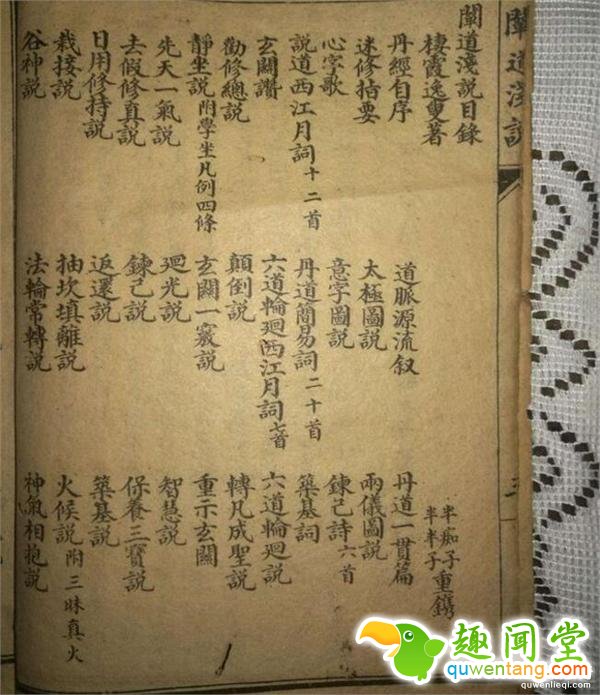 闡道淺説
三
闡道淺説目錄
棲霞逸叟著 半痴子 半半子 重鐫
丹經自序 道脈源流叙 丹道一貫篇
迷修指要 太極圖説 兩儀圖説
心字歌 意字圖説 鍊己詩六首
説道西江月詞十二首 丹道簡易詞二十首 築基詞
玄關讚 六道輪廻西江月詞七首 六道輪廻説
勸修總説 顛倒説 轉凡成聖説
靜坐説附學坐凡例四條 玄關一竅説 重示玄關
先天一氣説 廻光説 智慧説
去假修真説 鍊己説 保養三寶説
日用修持説 返還説 築基説
栽接説 抽坎填離説 火候説附三昧真火
谷神説 法輪常轉説 神氣相抱説
趣闻堂
quwentang.com
quwenlieqi.com